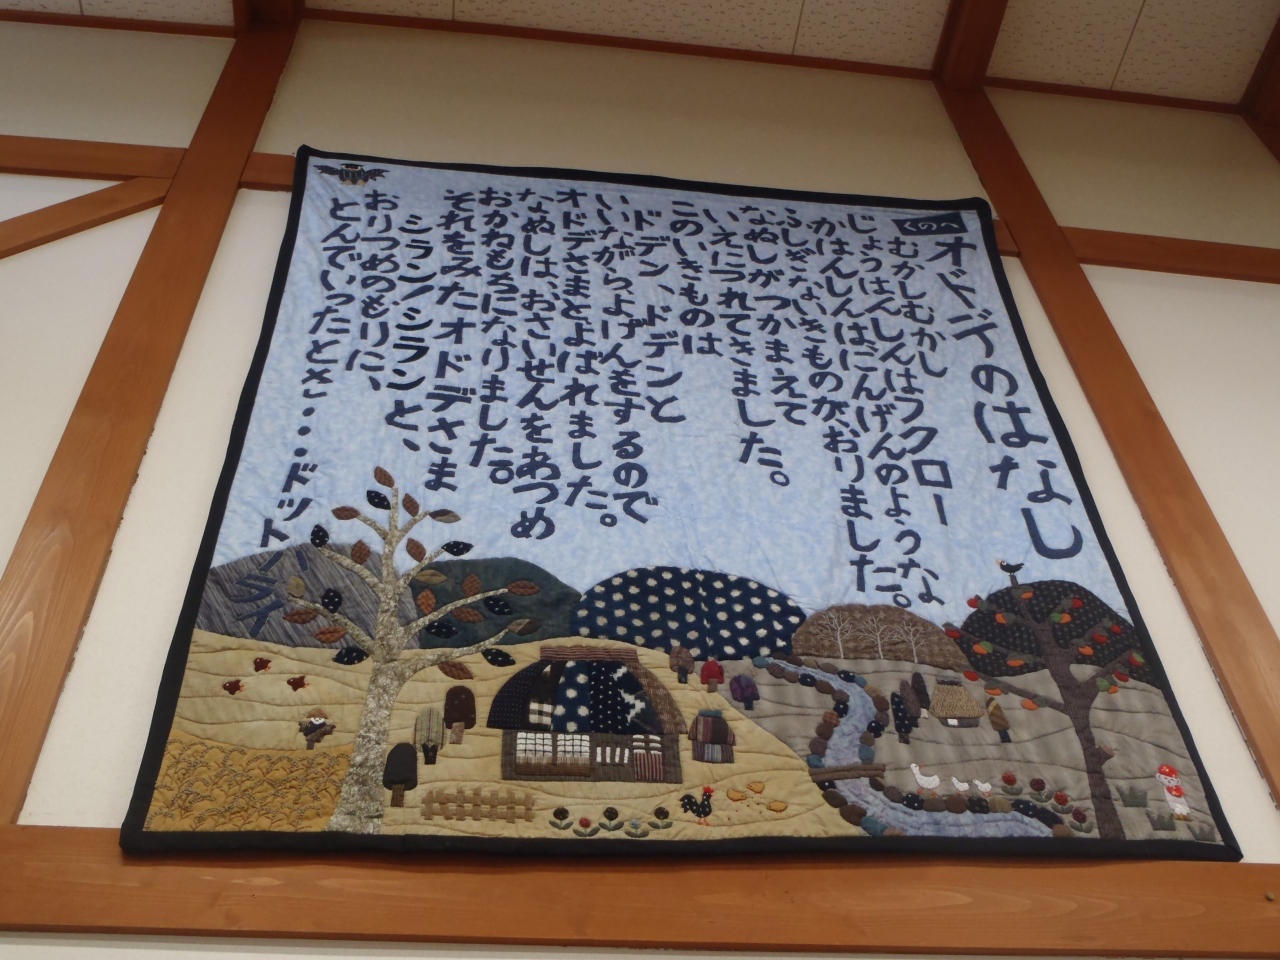 くのへ
オドデのはなし
むかしむかし
じょうはんしんはフクロー
かはんしんはにんげんのような
ふしぎないきものが、おりました。
なぬしがつかまえて
いえにつれてきました。
このいきものは、
ドデン、ドデンと
いいながらよげんをするので
オドデさまとよばれました。
なぬしは、おさいせんをあつめ
おかねもちになりました。
それをみたオドデさま
シラン、シランと、
おりつめのもりに、
とんでいったとさ・・・ドットハライ